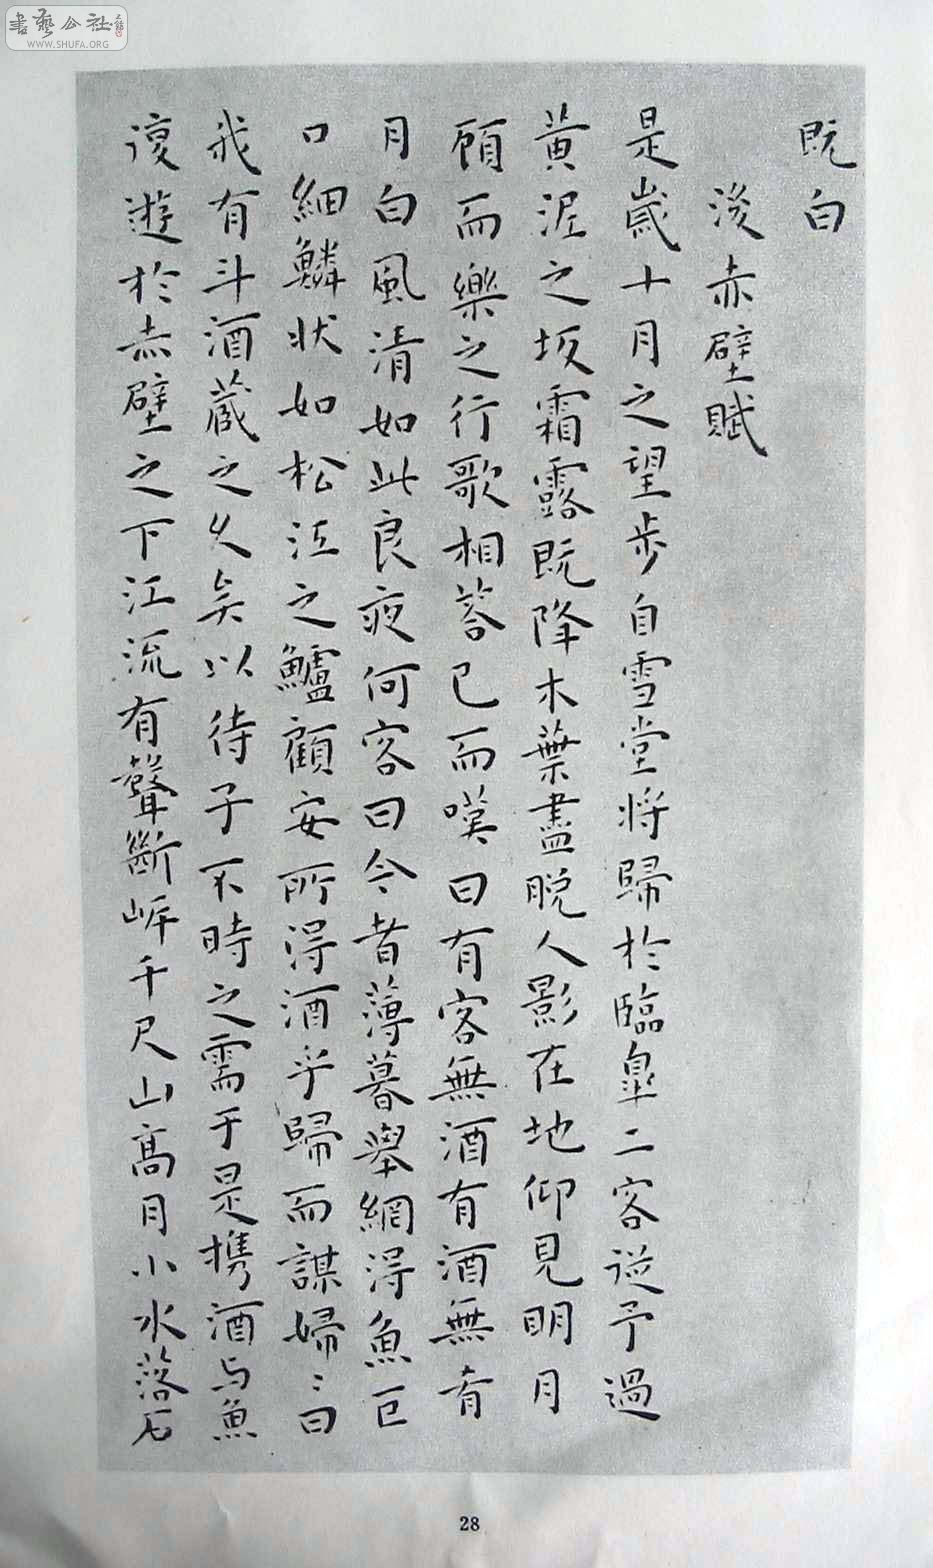 書藝公社
WWW.SHUFA.ORG
既白
後赤壁賦
是歲十月之望步自雪堂將歸於臨皐二客從予過
黃泥之坂霜露既降木葉盡脫人影在地仰見明月
顧而樂之行歌相荅已而嘆曰有客無酒有酒無肴
月白風清如此良夜何客曰今者薄暮舉網得魚巨
口細鱗狀如松江之鱸顧安所得酒乎歸而謀婦〻曰
我有斗酒藏之久矣以待子不時之需于是携酒与魚
復遊於赤壁之下江流有聲斷岸千尺山高月小水落石
28